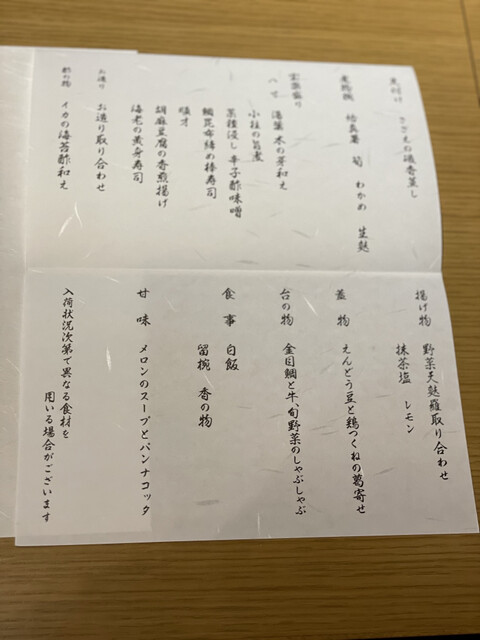 先付け さざえの磯香蒸し
煮物椀 蛤真薯 筍 わかめ 生麩
宝楽盛り
一寸 湯葉木の芽和え
小柱の旨煮
菜種浸し 辛子酢味噌
鯛昆布締め棒寿司
順才
胡麻豆腐の香煎揚げ
海老の黄身寿司
お造り お造り取り合わせ
酢の物 イカの海苔酢和え
揚げ物 野菜天麩羅取り合わせ
抹茶塩 レモン
蓋物 えんどう豆と鶏つくねの葛寄せ
台の物 金目鯛と牛、旬野菜のしゃぶしゃぶ
食事 白飯
留椀 香の物
甘味 メロンのスープとパンナコッタ
入荷状況次第で異なる食材を
用いる場合がございます